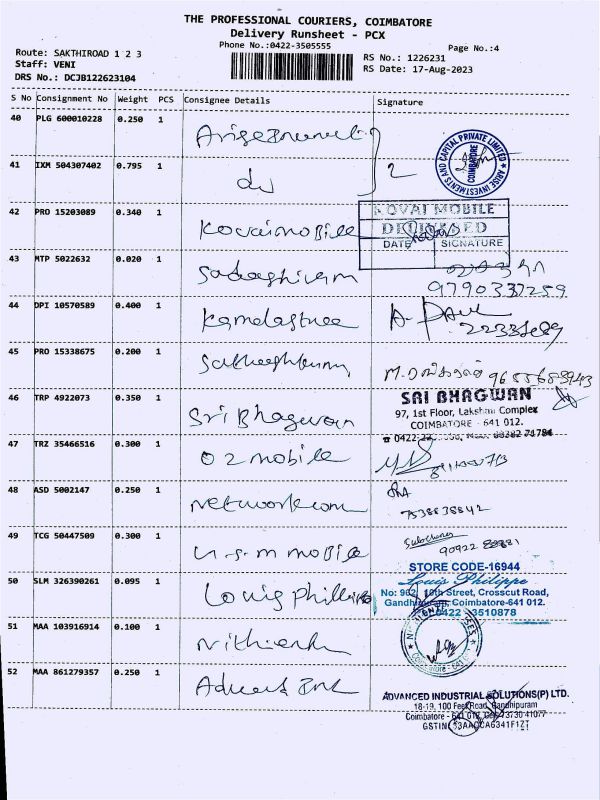 THE PROFESSIONAL COURIERS, COIMBATORE
Delivery Runsheet - PCX
Phone No.:0422-3505555
Page No.:4
Route: SAKTHIROAD 1 2 3
Staff: VENI
DRS No.: DCJB122623104
RS No.: 1226231
RS Date: 17-Aug-2023
S No Consignment No Weight PCS Consignee Details Signature
40 PLG 600010228 0.250 1
ARISE INVESTMENTS AND CAPITAL PRIVATE LIMITED
COIMBATORE
41 IXM 504307402 0.795 1 do 2
42 PRO 15203089 0.340 1 Kovai mobile
KOVAI MOBILE
DELIVERED
DATE SIGNATURE
43 MTP 5022632 0.020 1 Sadaashivam
9790337259
44 DPI 10570589 0.400 1 Kamalastree A. PAUL
45 PRO 15338675 0.200 1
46 TRP 4922073 0.350 1 Sri Bhagwan
SRI BHAGWAN
97, 1st Floor, Lakshmi Complex
COIMBATORE - 641 012.
47 TRZ 35466516 0.300 1 O2 mobile
48 ASD 5002147 0.250 1 Network com
7538838842
49 TCG 50447509 0.300 1 U.S.M mobile
90922
50 SLM 326390261 0.095 1 Louis Phillippe
STORE CODE-16944
Louis Philippe
No: 962, 10th Street, Crosscut Road,
Gandhipuram, Coimbatore-641 012.
0422 - 3510878
51 MAA 103916914 0.100 1
52 MAA 861279357 0.250 1
ADVANCED INDUSTRIAL SOLUTIONS(P) LTD.
18-19, 100 Feet Road, Gandhipuram
Coimbatore - 641 012
GSTIN: 33AACCA6341F1ZT